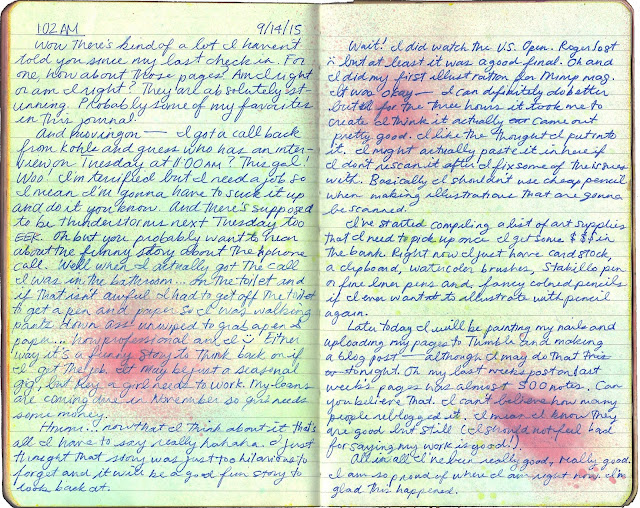 1:02 AM 9/14/15
Wow there's kind of a lot I haven't
told you since my last check in. For
one, how about those pages? Am I right
or am I right? They are absolutely st-
unning. Probably some of my favorites
in this journal!
And moving on — I got a call back
from kohls and guess who has an inter-
view on Tuesday at 11:00 AM? This gal!
Woo! I'm terrified but I need a job so
I mean I'm gonna have to suck it up
and do it you know. And there's supposed
to be thunderstorms next Tuesday too
EEK. Oh but you probably want to hear
about the funny story about the phone
call. Well when I actually got the call
I was in the bathroom... on the toilet and
if that isn't awful I had to get off the toilet
to get a pen and paper so I was walking
pants down ass unwiped to grab a pen &
paper... how professional am I :) Either
way it's a funny story to think back on if
I got the job. It may be just a seasonal
gig, but hey a girl needs to work. My loans
are coming due in November so girl needs
some money.
Hmm... now that I think about it that's
all I have to say really hahaha. I just
thought that story was just too hilarious to
forget and it will be a good fun story to
look back at.
Wait! I did watch the U.S. Open. Roger lost
but at least it was a good final. Oh and
I did my first illustration for Mimp mag.
It was okay — I can definitely do better
but all for the three hours it took me to
create I think it actually came out
pretty good. I like the thought I put into
it. I might actually paste it in here if
I don't rescan it after I fix some of the issues
with. Basically I shouldn't use cheap pencil
when making illustrations that are gonna
be scanned.
I've started compiling a list of art supplies
that I need to pick up once I get some $$$ in
the bank. Right now I just have cardstock,
a clipboard, watercolor brushes, Stabillo pen
or fine liner pens and fancy colored pencils
if I ever want to illustrate with pencil
again.
Later today I will be painting my nails and
uploading my pages to Tumblr and making
a blog post — although I may do that
tonight. Oh my last week's post on last
week's pages has almost 500 notes. Can
you believe that. I can't believe how many
people reblogged it. I mean I know they
are good but still (I should not feel bad
for saying my work is good!).
All in all I've been really good, really good.
I am so proud of where I am right now. I'm
glad this happened.